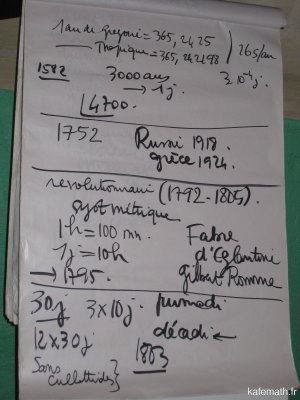 1 an de Grégoire = 365,2425
Tropique = 365,242198
26s/an
1582
3000 ans
→ 1j
3 10⁻⁴ j
4700
1752
Russie 1918.
Grèce 1924.
révolutionnaire (1792-1805).
syst métrique
1h = 100 mn.
1j = 10h
→ 1795
Fabre
d'Eglantine
Gilbert Romme
30j 3x10j. primidi
12x30j décadi ←
Sans culottides
1803
kafemath.fr